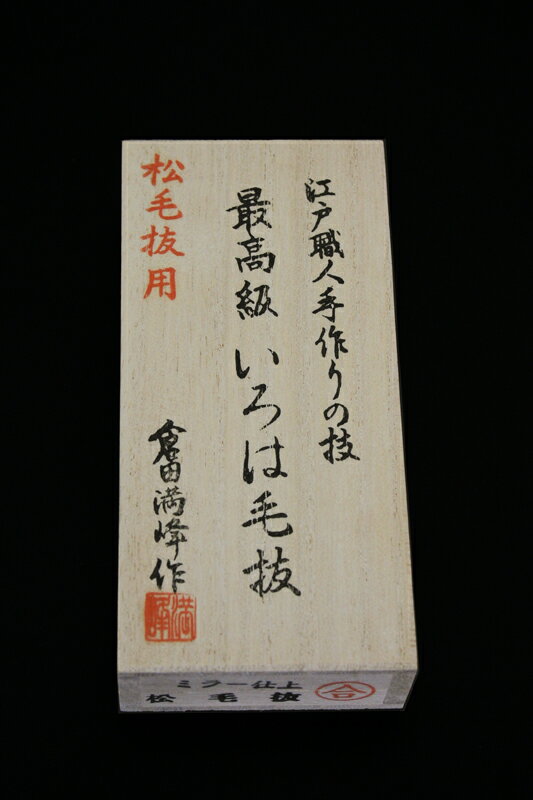 江戸職人手作りの技
最高級いろは毛抜
松毛抜用
倉田満峰作
満峰
ミラー仕上
松毛抜
合